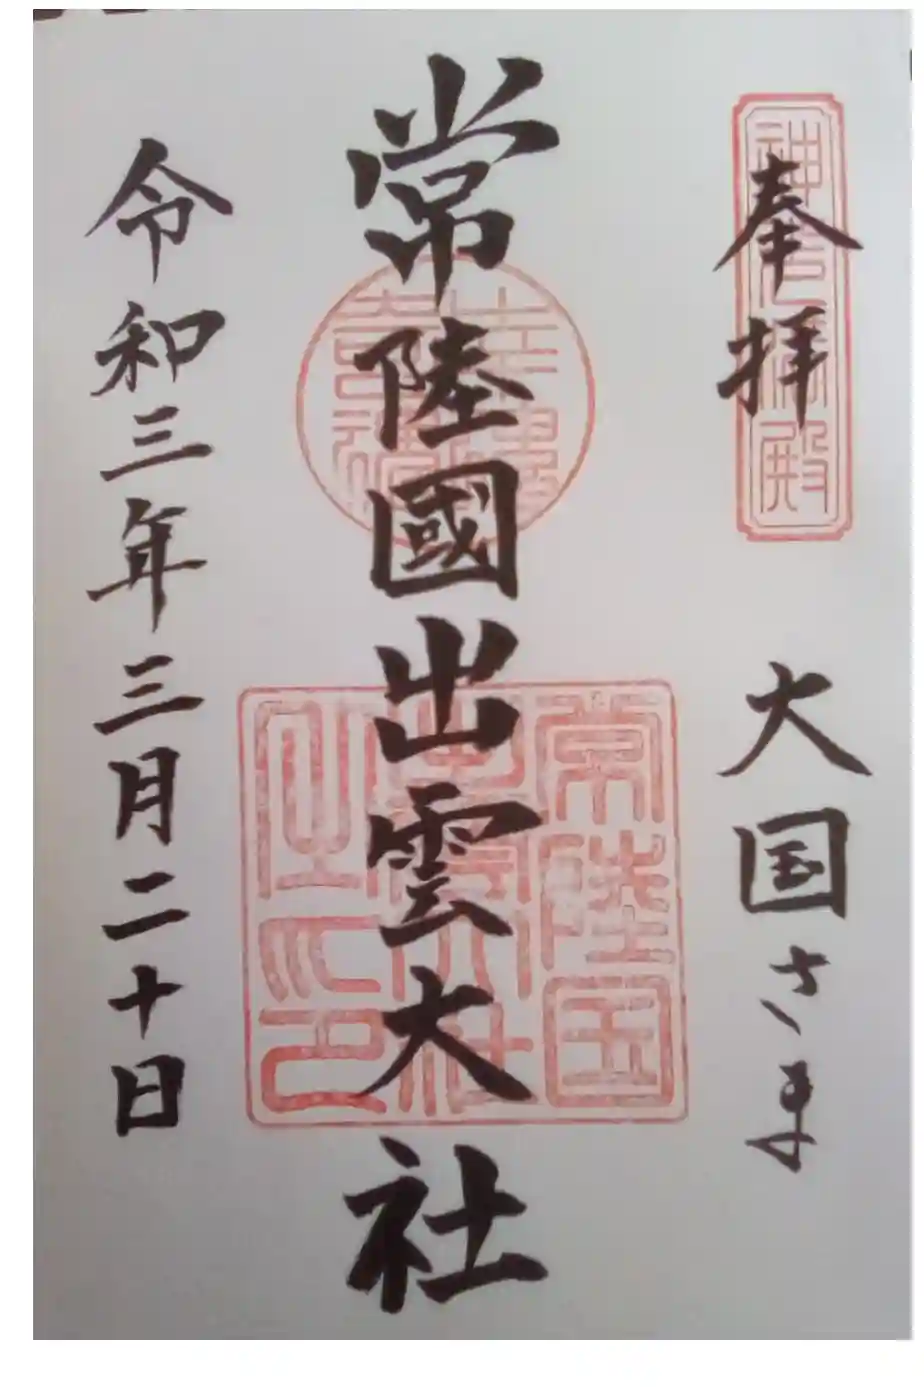 奉拝
大国さま
常陸國出雲大社
常陸国
令和三年三月二十日